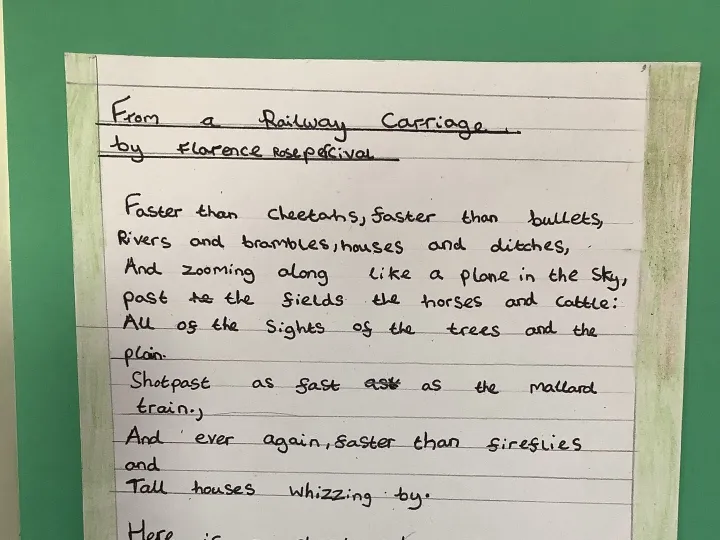 From a Railway Carriage.
by Florence Rose percival
Faster than cheetahs, faster than bullets,
Rivers and brambles, houses and ditches,
And zooming along like a plane in the sky,
past the fields the horses and cattle:
All of the sights of the trees and the
plain.
Shotpast as fast as the mallard
train.,
And ever again, faster than fireflies
and
Tall houses whizzing by.
Here is